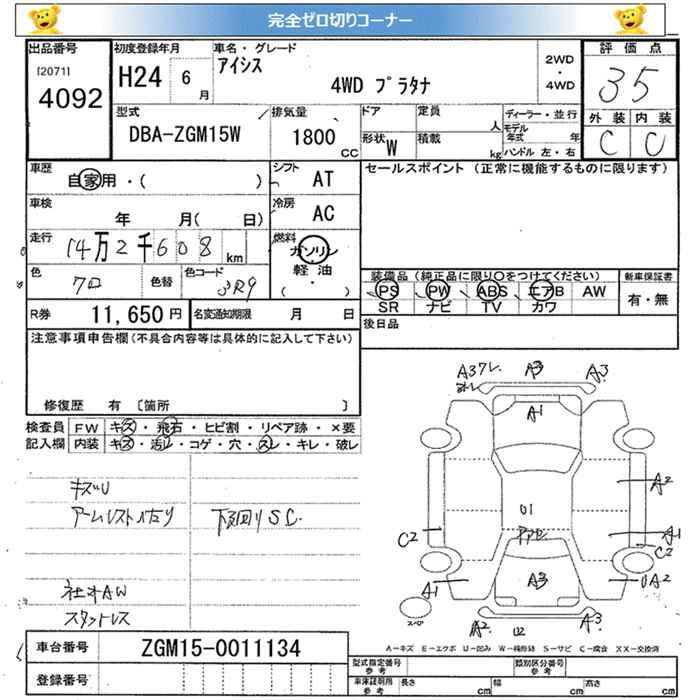 完全ゼロ切りコーナー
出品番号
[2071]
4092
初度登録年月
H24 6 月
車名・グレード
アイシス
4WD プラタナ
2WD
・
4WD
評価点
35
外装 内装
C C
型式
DBA-ZGM15W
排気量
1800
CC
ドア
形状 W
定員
人
積載
kg
ディーラー・並行
モデル年式 年
ハンドル 左・右
車歴
自家用・( )
シフト
AT
車検
年 月( 日)
冷房
AC
走行
14万2千608 km
燃料
ガソリン
軽油
( ・ )
色
クロ
色替
色コード
3R9
R券
11,650 円
名変通知期限 月 日
セールスポイント (正常に機能するものに限ります)
装備品 (純正品に限り○をつけてください)
PS PW ABS エアB AW
SR ナビ TV カワ
新車保証書
有・無
後日品
注意事項申告欄(不具合内容等は具体的に記入して下さい)
修復歴 有 〔箇所 〕
検査員記入欄
FW キズ・飛石・ヒビ割・リペア跡・×要
内装 キズ・汚レ・コゲ・穴・スレ・キレ・破レ
キズU
アームレスト
下回りSC.
社オAW
スタットレス
A3ワレ A3 A3
A1
A2
U1
C2
A1
C2
A1
A3
UA2
A2 U2 A3
A-キズ E-エクボ U-凹み W-補修跡 S-サビ C-腐食 XX-交換済
車台番号
ZGM15-0011134
登録番号
型式指定番号
参考
類別区分番号
参考
車庫証明用
参考
長さ cm 幅 cm 高さ cm